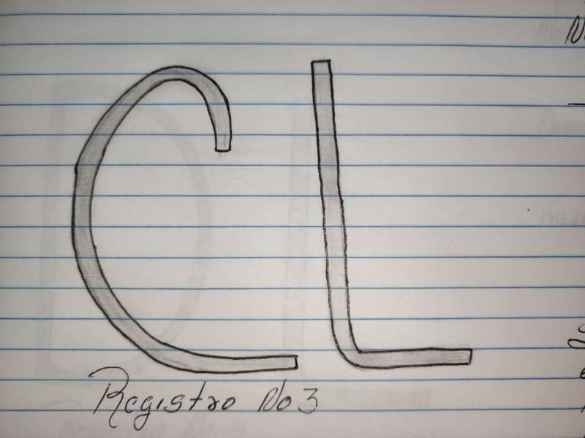 CL
Registro No 3